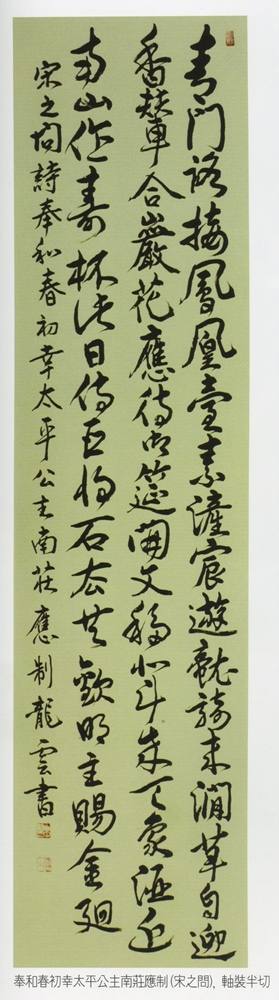 青門路接鳳凰臺素滻宸遊龍騎来澗草自迎
香輦合巖花應待御筵開文移北斗成天象酒近
南山作壽杯此日侍臣將石去共歡明主賜金廻
宋之問詩奉和春初幸太平公主南莊應制龍雲書
奉和春初幸太平公主南莊應制(宋之問), 軸裝半切